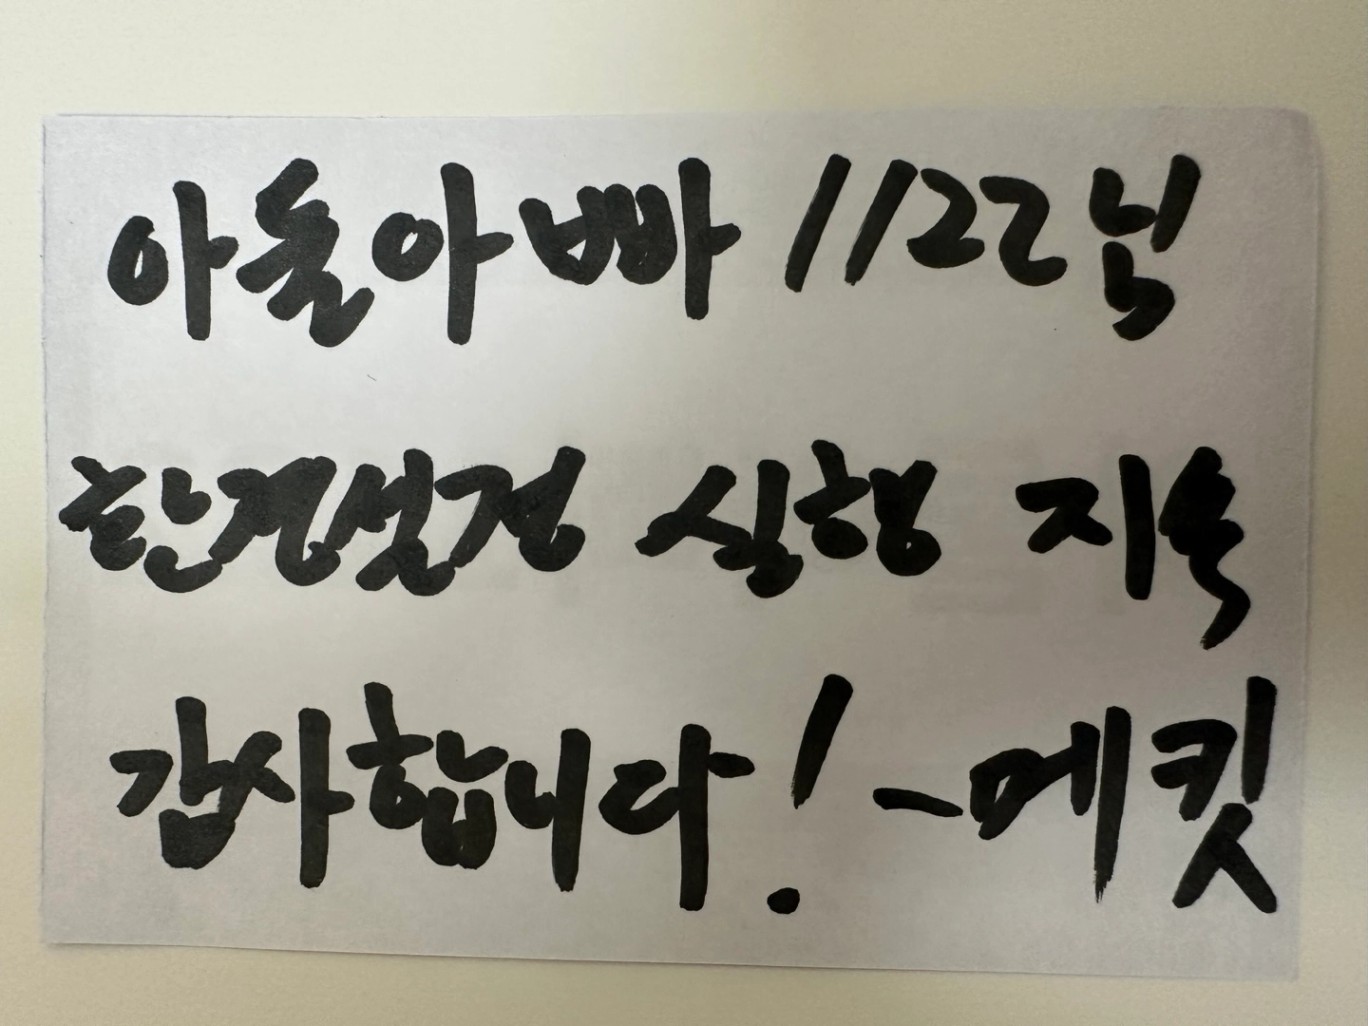 아돌아빠 1122님
환경설정 실행 지속
감사합니다! -메킷